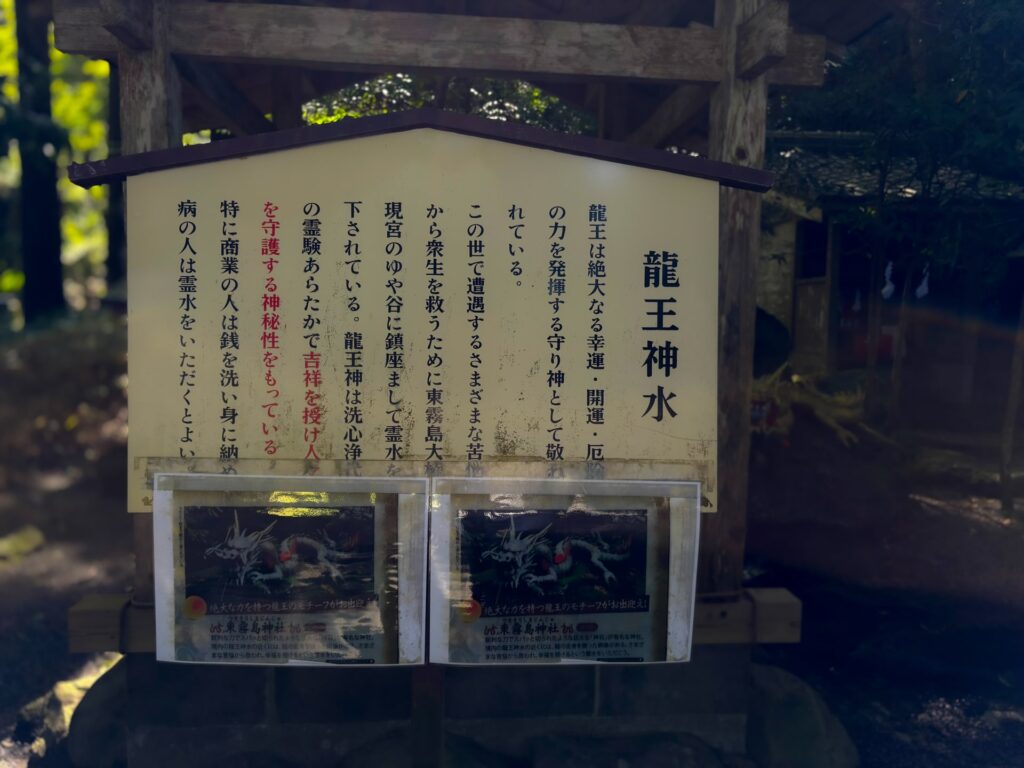 龍王神水
龍王は絶大なる幸運・開運・厄除
の力を発揮する守り神として敬わ
れている。
この世で遭遇するさまざまな苦
から衆生を救うために東霧島大
現宮のゆや谷に鎮座まして霊水を
下されている。龍王神は洗心浄
の霊験あらたかで吉祥を授け人
を守護する神秘性をもっている
特に商業の人は銭を洗い身に納め
病の人は霊水をいただくとよい
絶大な力を持つ龍王のモチーフがお出迎え!
東霧島神社
絶大な力を持つ龍王のモチーフがお出迎え!
東霧島神社